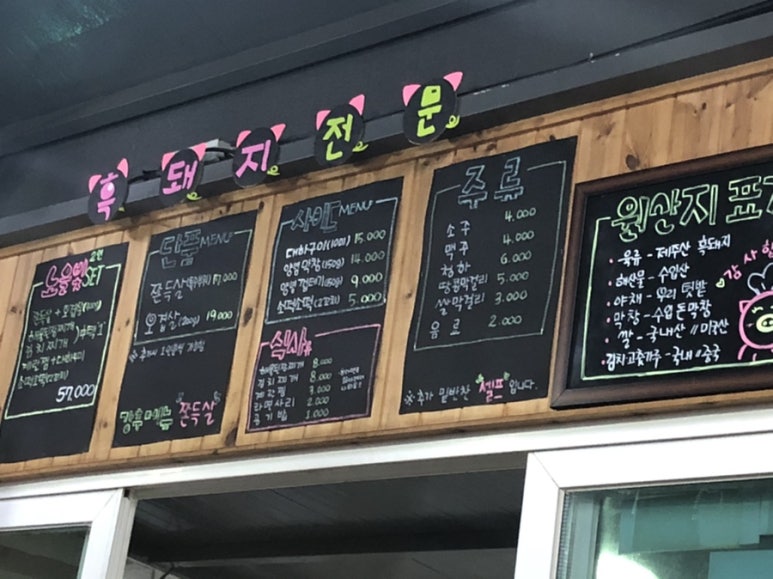 흑돼지전문
노을빛 2인 SET
57,000
단품 MENU
쫀득살 17,000
오겹살(200g) 19,000
강추메뉴 쫀득살
사이드 MENU
대하구이(10미) 15,000
양념막창(150g) 14,000
양념껍데기(150g) 9,000
소떡소떡(2꼬치) 5,000
식사
해물된장찌개 8,000
김치찌개 8,000
계란찜 3,000
라면사리 2,000
공기밥 1,000
주류
소주 4,000
맥주 4,000
청하 6,000
땅콩막걸리 5,000
쌀막걸리 3,000
음료 2,000
※추가 밑반찬 "셀프"입니다.
원산지 표
·육류 - 제주산 흑돼지
·해산물 - 수입산
·야채 - 우리 텃밭
·막창 - 수입 돈막창
·쌀 - 국내산 // 미국산
·김치고춧가루 - 국내 // 중국
감사합